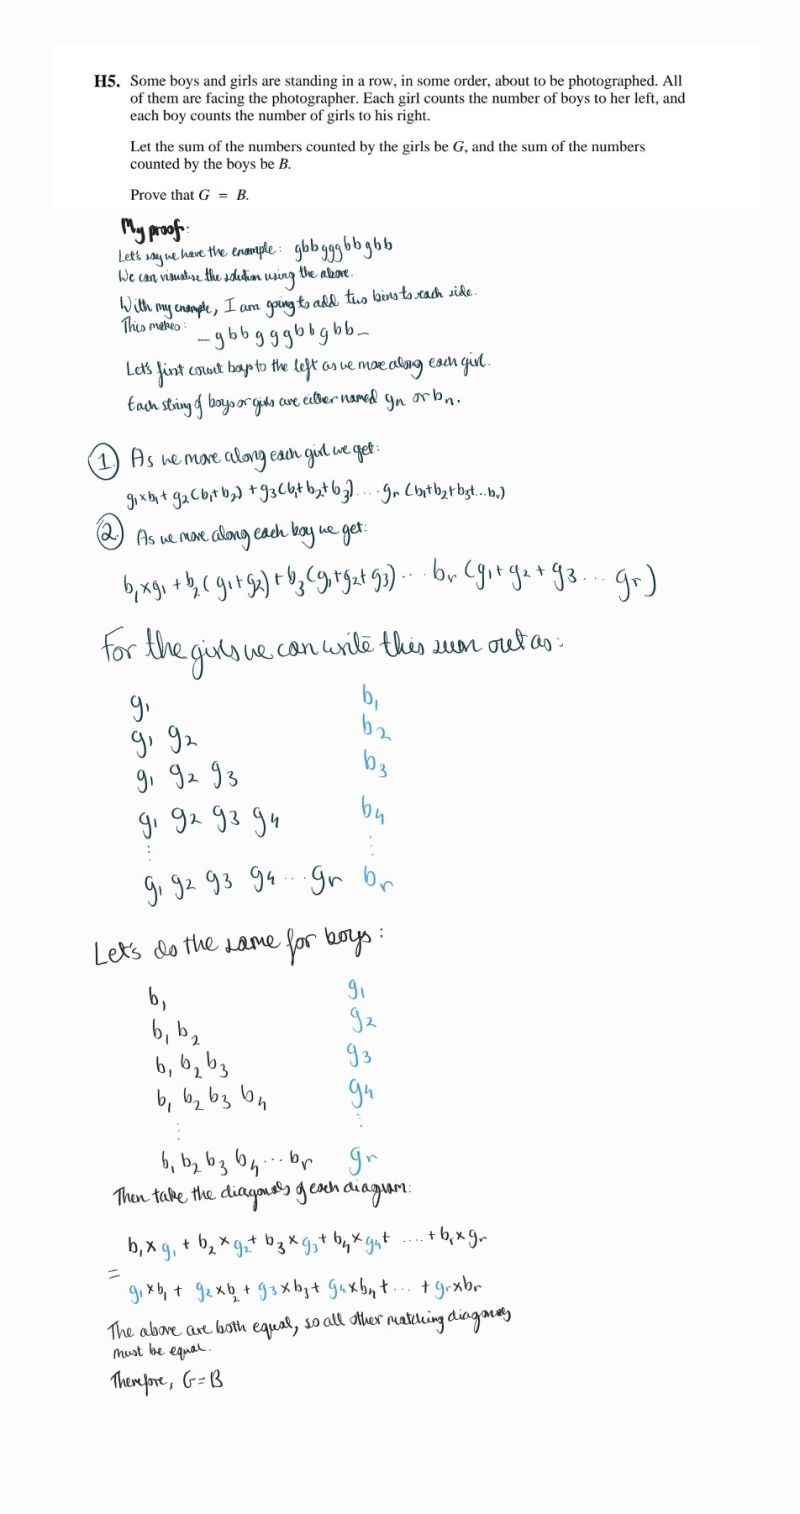 H5. Some boys and girls are standing in a row, in some order, about to be photographed. All
of them are facing the photographer. Each girl counts the number of boys to her left, and
each boy counts the number of girls to his right.
Let the sum of the numbers counted by the girls be G, and the sum of the numbers
counted by the boys be B.
Prove that G = B.
My proof:
Let's say we have the example: gbbgggbbgbb
We can visualise the solution using the above.
With my example, I am going to add two bins to each side.
This makes:
_gbbgggbbgbb_
Let's first count boys to the left as we move along each girl.
Each string of boys or girls are either named gn or bn.
① As we move along each girl we get:
g₁×b₁+ g₂(b₁+b₂) + g₃(b₁+b₂+b₃)....gr (b₁+b₂+b₃+...br)
② As we move along each boy we get:
b₁×g₁ + b₂(g₁+g₂) + b₃(g₁+g₂+g₃)... br (g₁+g₂+g₃... gr)
For the girls we can write this sum out as:
g₁ b₁
g₁ g₂ b₂
g₁ g₂ g₃ b₃
g₁ g₂ g₃ g₄ b₄
⋮ ⋮
g₁ g₂ g₃ g₄ ... gr br
Let's do the same for boys:
b₁ g₁
b₁ b₂ g₂
b₁ b₂ b₃ g₃
b₁ b₂ b₃ b₄ g₄
⋮ ⋮
b₁ b₂ b₃ b₄ ... br gr
Then take the diagonals of each diagram:
b₁× g₁ + b₂× g₂+ b₃× g₃+ b₄× g₄+ .... + br× gr
=
g₁×b₁ + g₂×b₂ + g₃×b₃+ g₄×b₄+... + gr×br
The above are both equal, so all other matching diagonals
must be equal.
Therefore, G=B